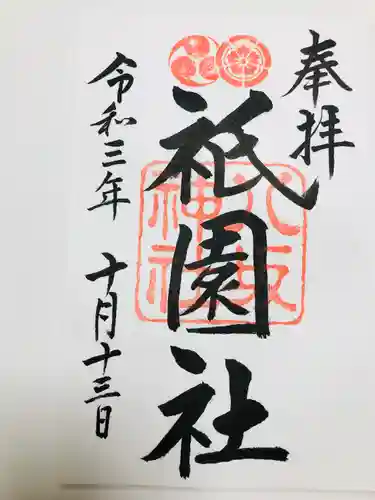 奉拝
祇園社
八坂神社
令和三年 十月十三日